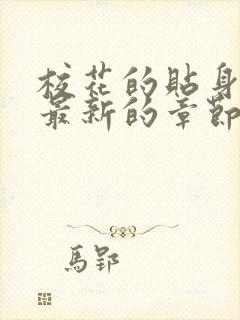 校花的貼身
最新的章節
馬郢